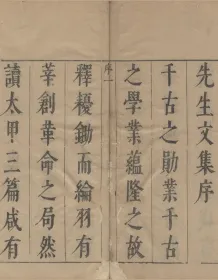 先生文集序
千古之勛業千古
之學業蘊隆之故
序一
釋耰鋤而綸羽有
莘創革命之局然
讀太甲三篇咸有